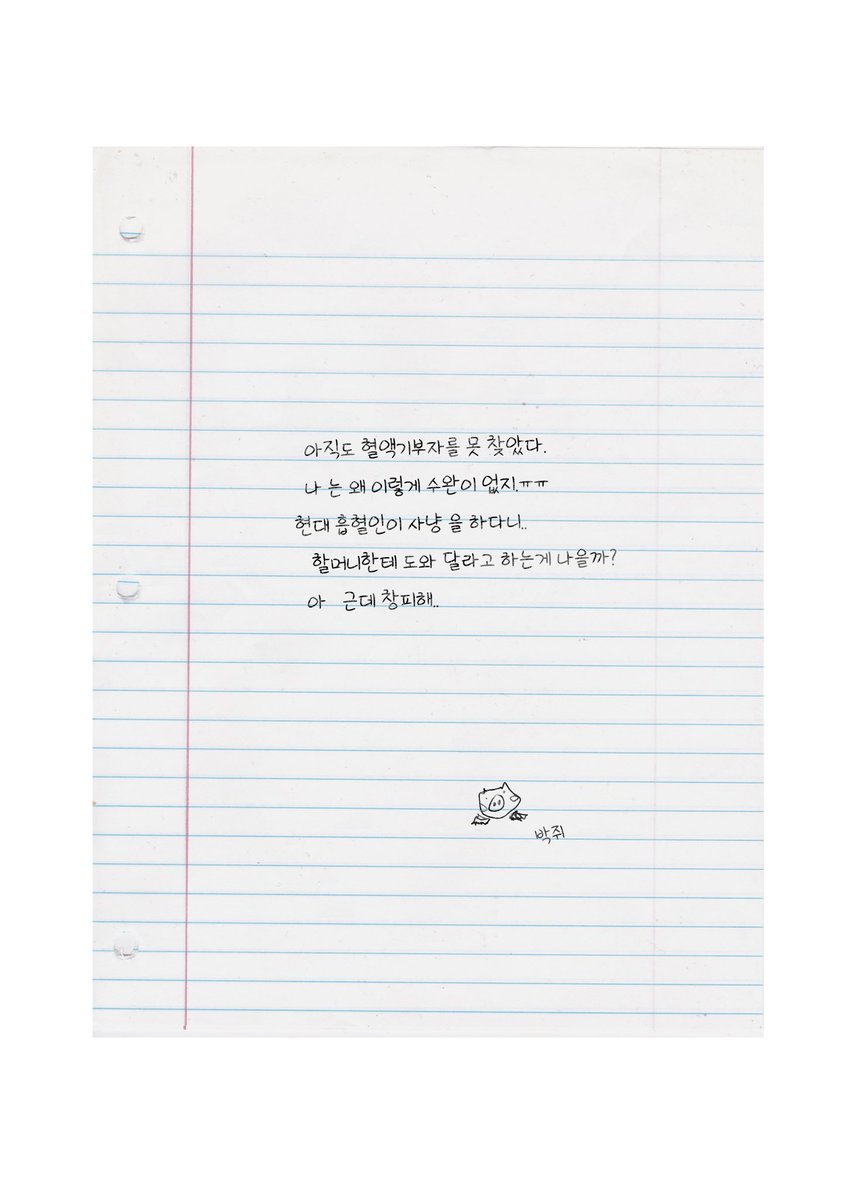 아직도 혈액기부자를 못 찾았다.
나 는 왜 이렇게 수완이 없지.ㅠㅠ
현대 흡혈인이 사냥 을 하다니..
할머니한테 도와 달라고 하는게 나을까?
아 근데 창피해..
박쥐